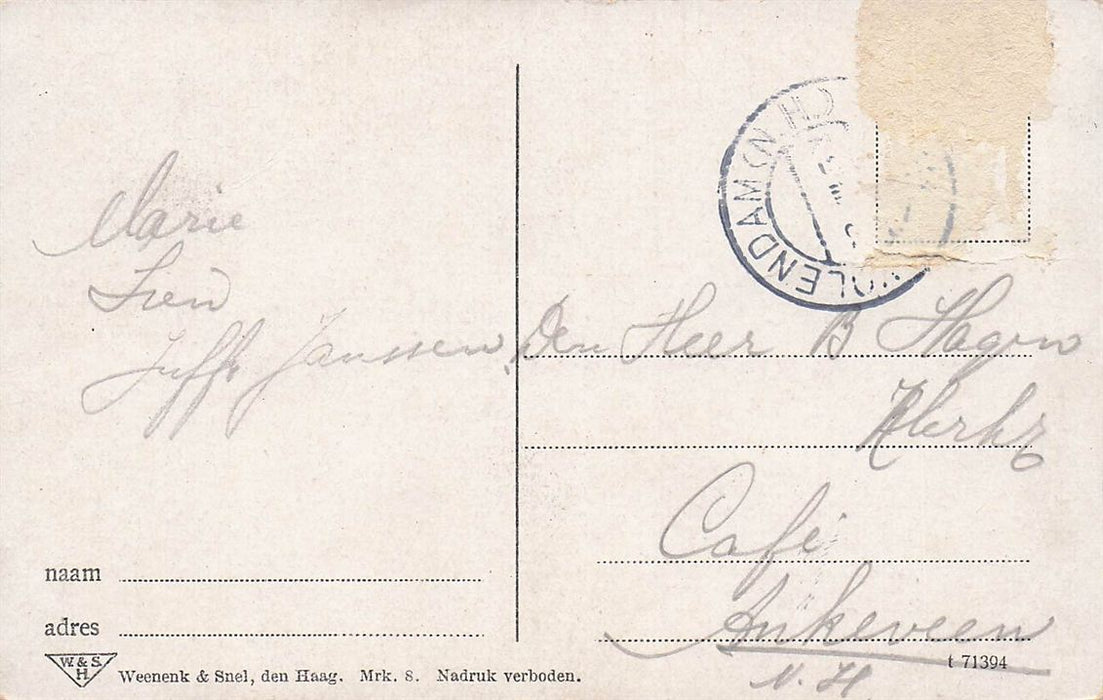 Marie
Sien
Juffr Janssen
naam
adres
W. & S.
H.
Weenenk & Snel, den Haag. Mrk. 8. Nadruk verboden.
VOLENDAM (N.H.)
Den Heer B Hagen
Café
Ankeveen
t 71394
N. H